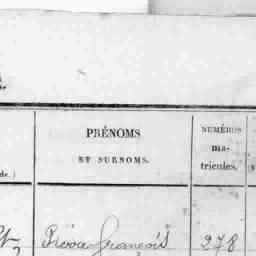 PRÉNOMS
ET SURNOMS.
NUMÉROS
ma-
tricules.
de.)
François 278